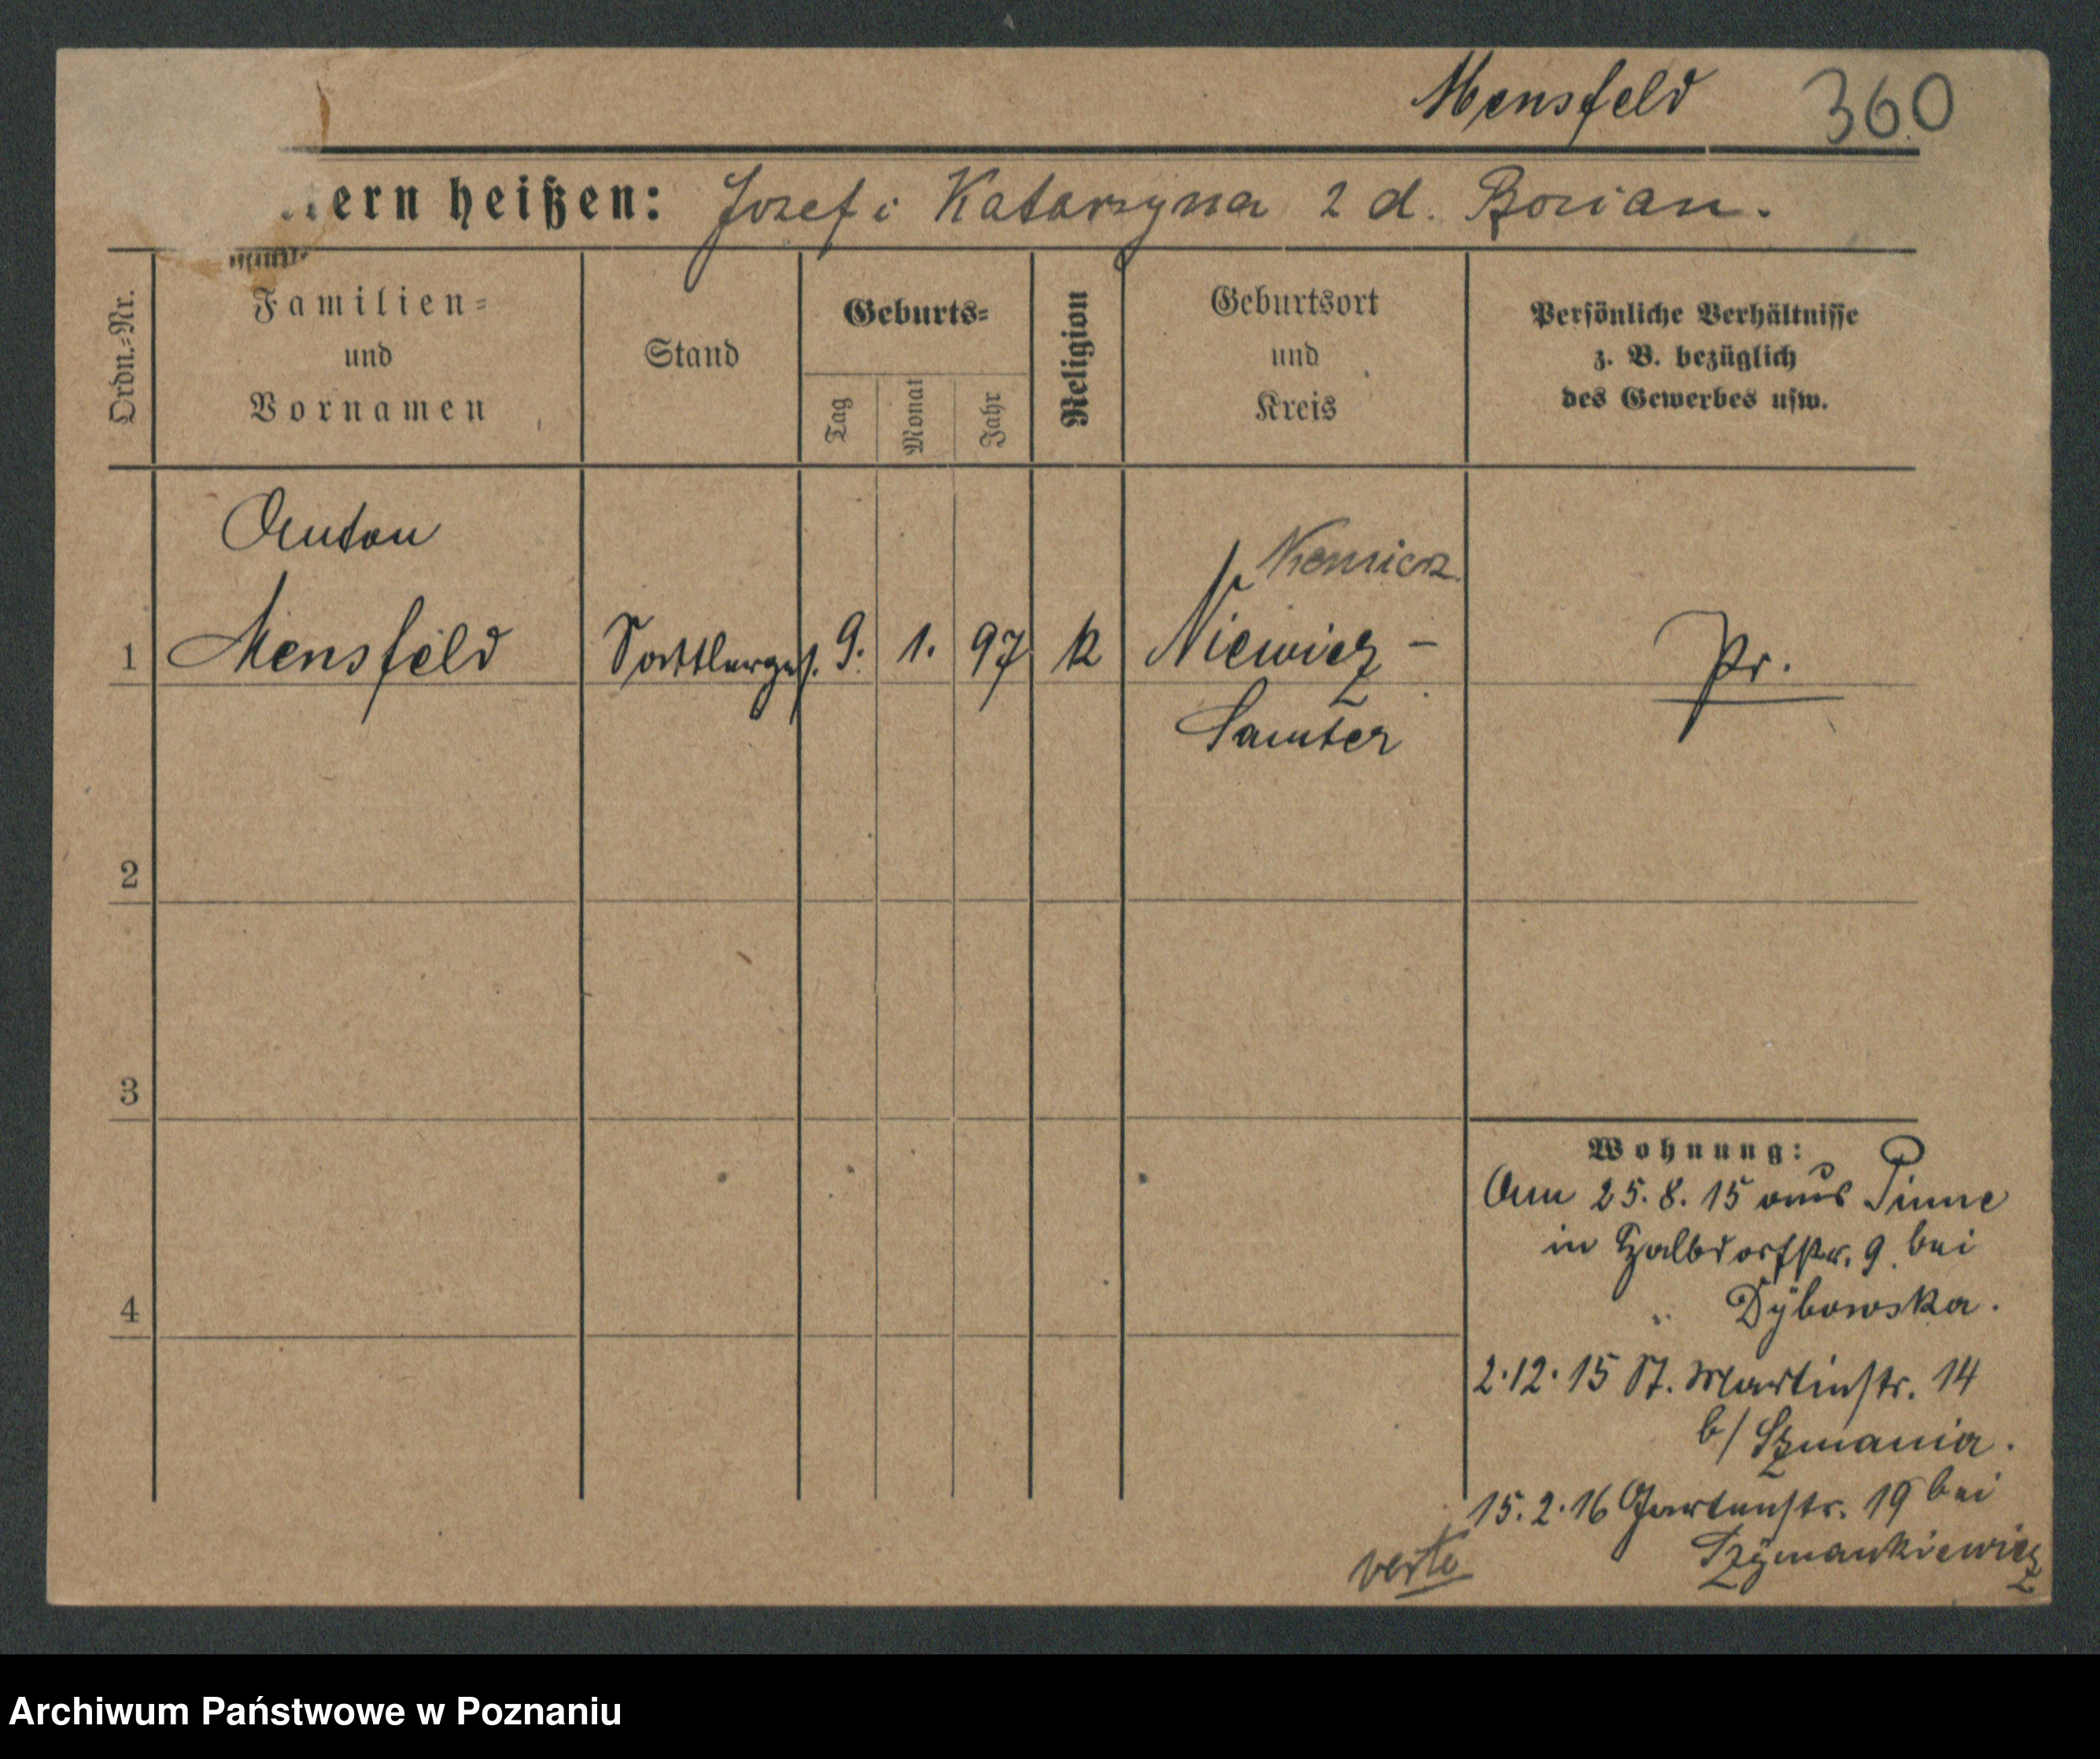 Mensfeld 360
tern heißen: Jozef i Katarzyna 2 d. Bozian.
Ordn.=Nr.
Familien=
und
Vornamen
Stand
Geburts=
Tag
Monat
Jahr
Religion
Geburtsort
und
Kreis
Persönliche Verhältnisse
z. B. bezüglich
des Gewerbes usw.
Anton
1 Mensfeld Sattlerges. 9. 1. 97 k Niewierz - Pr.
Samter
2
3
4
Wohnung:
Am 25.8.15 aus Pinne
in Halbdorfstr. 9 bei
Dybowska.
2.12.15 St. Martinstr. 14
b/ Szmania.
15.2.16 Gartenstr. 19 bei
Szymankiewicz
verte
Archiwum Państwowe w Poznaniu